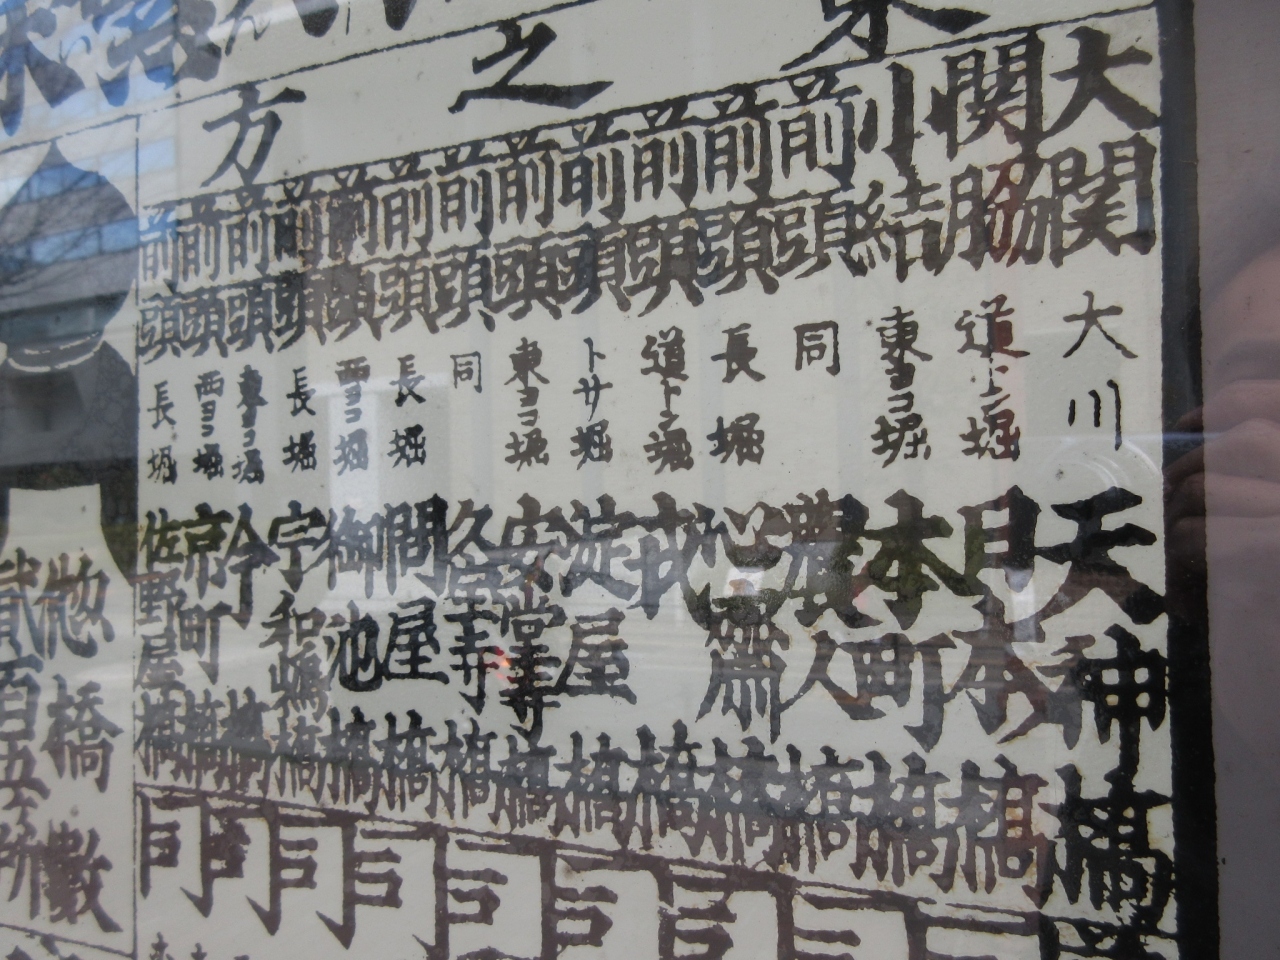 東之方
大関 大川 天神橋
関脇 道トン堀 日本橋
小結 東ヨコ堀 本町橋
前頭 同 農人橋
前頭 長堀 心齋橋
前頭 道トン堀 戎橋
前頭 トサ堀 淀屋橋
前頭 東ヨコ堀 安堂寺橋
前頭 同 久宝寺橋
前頭 長堀 問屋橋
前頭 西ヨコ堀 御池橋
前頭 長堀 宇和嶋橋
前頭 東ヨコ堀 今橋
前頭 西ヨコ堀 京町橋
前頭 長堀 佐野屋橋
惣橋數
貳百五ヶ所